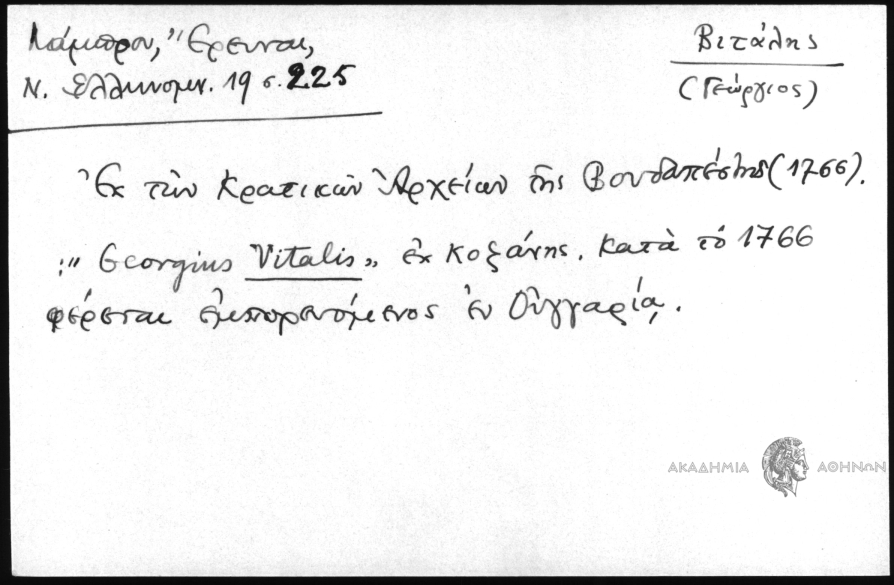 Λάμπρου, "Έρευναι,
Ν. Ἑλληνομν. 19 σ. 225
Βιτάλης
(Γεώργιος)
Ἐκ τῶν Κρατικῶν Ἀρχείων τῆς Βουδαπέστης (1766).
:" Georgius Vitalis" ἐκ Κοζάνης. Κατὰ τὸ 1766
φέρεται ἐμπορευόμενος ἐν Οὑγγαρίᾳ.
ΑΚΑΔΗΜΙΑ ΑΘΗΝΩΝ